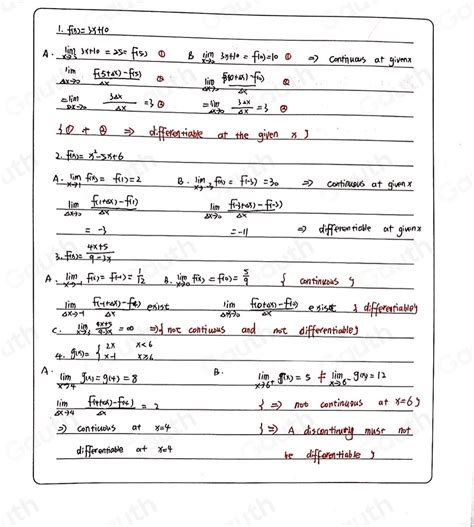 1. f(x)= 3x+10
A. lim x→5 3x+10 = 25= f(5) ① B lim x→0 3x+10 = f(0)=10 ① ⇒ continuous at given x
lim Δx→0 f(5+Δx)-f(5) / Δx ② lim Δx→0 f(0+Δx)-f(0) / Δx ②
=lim Δx→0 3Δx / Δx =3 ② =lim Δx→0 3Δx / Δx =3 ②
{ ① + ② ⇒ differentiable at the given x }
2. f(x)= x²-5x+6
A. lim x→1 f(x) = f(1)=2 B. lim x→-3 f(x) = f(-3) =30 ⇒ continuous at given x
lim Δx→0 f(1+Δx)-f(1) / Δx lim Δx→0 f(-3+Δx)-f(-3) / Δx
= -3 =-11 ⇒ differentiable at given x
3. f(x)= 4x+5 / 9-3x
A. lim x→-1 f(x)= f(-1)= 1/12 B. lim x→0 f(x) = f(0)= 5/9 { continuous }
lim Δx→-1 f(-1+Δx)-f(-1) / Δx exist lim Δx→0 f(0+Δx)-f(0) / Δx exist { differentiable }
C. lim x→3 4x+5 / 9-3x = ∞ ⇒{ not continuous and not differentiable}
4. g(x)= { 2x x<6
x-1 x≥6
A. lim x→4 g(x) = g(4) = 8 B. lim x→6⁺ g(x) = 5 ≠ lim x→6⁻ g(x) =12
lim Δx→4 f(4+Δx)-f(4) / Δx = 2 { ⇒ not continuous at x=6 }
⇒ continuous at x=4 { ⇒ A discontinuity must not
differentiable at x=4 be differentiable }